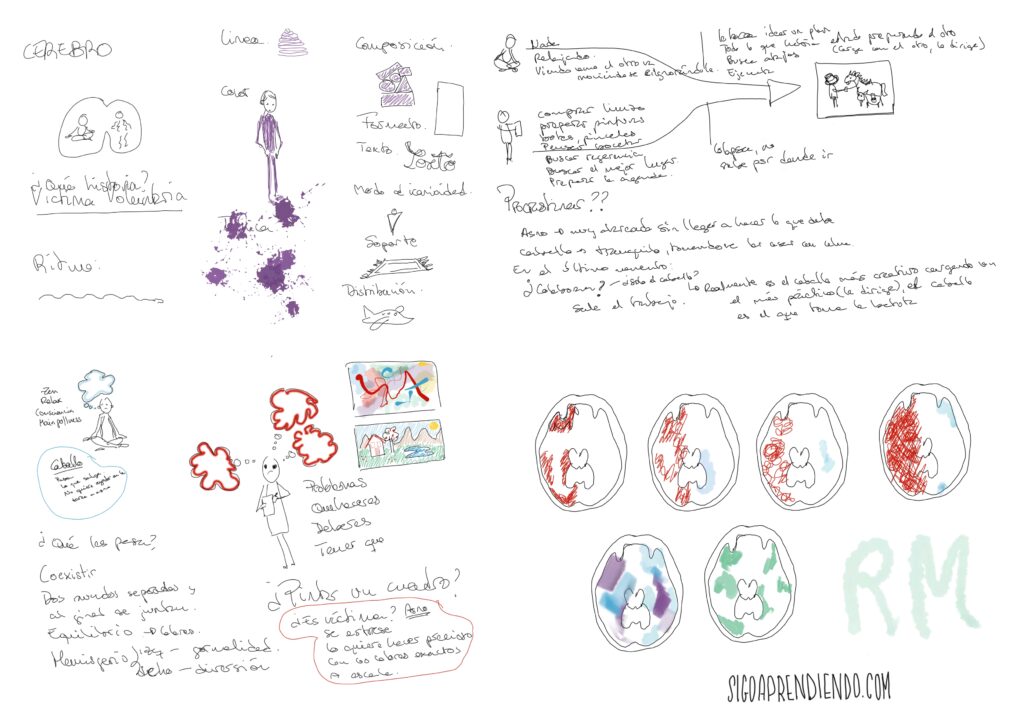 CEREBRO
¿Qué historia?
Víctima Voluntaria
Ritmo.
Línea.
Color
Composición.
Formato.
Texto
Modo de iconicidad.
Soporte
Distribución.
Nada
Relajando.
Viendo como el otro va
moviéndose e ignorándole.
comprar lienzo
preparar pinturas
botes, pinceles
Pensar bocetar
Buscar referencia
Buscar el mejor lugar
Preparar la agenda.
idear un plan
Todo lo que había estado preparando el otro
(carga con el otro, lo dirige)
Busca atajos
Ejecuta
Colapsa, no
sabe por donde ir
Procrastinar??
Asno → muy atareado sin llegar a hacer lo que debe
caballo → tranquilo,
En el último momento:
¿Colaboran?
Sale el trabajo.
Lo Realmente es el caballo más creativo cargando con
el más práctico (le dirige), el caballo
es el que toma la
Zen
Relax
Consciencia
Mainfullness
Caballo
Problemas
Quehaceres
Deberes
Tener que
¿Qué les pasa?
Coexistir
Dos mundos separados y
al final se juntan.
Equilibrio → Cebras.
Hemisferio Izq – formalidad.
Dcho – diversión
¿Pintar un cuadro?
¿Es víctima? Asno
se estresa
lo quiere hacer precioso
con los colores exactos
A escala.
RM
SIGOAPRENDIENDO.COM